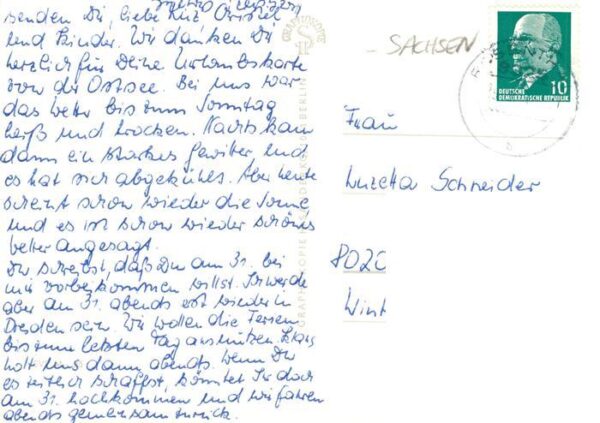 senden Dir, liebe
und Kinder. Wir danken Dir
herzlich für Deine Urlaubskarte
von der Ostsee. Bei uns war
das Wetter bis zum Sonntag
heiß und trocken. Nachts kam
dann ein starkes Gewitter und
es hat sich abgekühlt. Aber heute
scheint schon wieder die Sonne
und es ist schon wieder schönes
Wetter angesagt.
Du schreibst, daß Du am 31. bei
mir vorbeikommen willst. Ich werde
aber am 31. abends erst wieder in
Dresden sein. Wir wollen die Ferien
bis zum letzten Tag ausnützen. Klaus
holt uns dann abends. Wenn Ihr
es zeitlich schafft, könntet Ihr doch
am 31. hochkommen und wir fahren
abends gemeinsam zurück.
- SACHSEN
10
DEUTSCHE
DEMOKRATISCHE REPUBLIK
Frau
Luzetta Schneider
8020
Wint